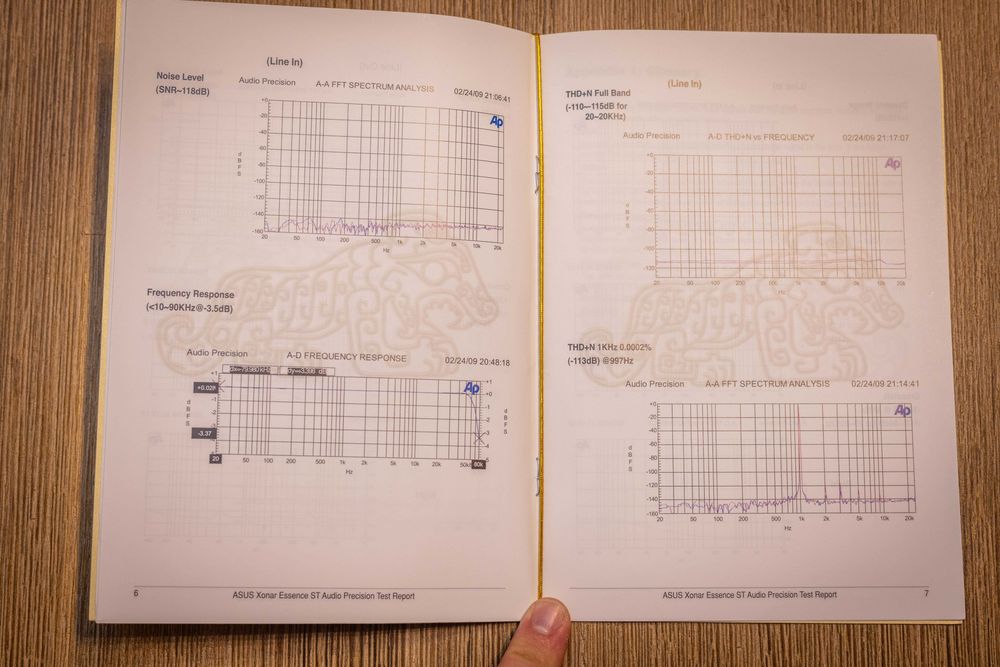 (Line In)
Noise Level
(SNR~118dB)
Audio Precision A-A FFT SPECTRUM ANALYSIS 02/24/09 21:06:41
+0
-20
-40
-60
-80
-100
-120
-140
-160
d
B
F
S
Ap
20 50 100 200 500 1k 2k 5k 10k 20k
Hz
Frequency Response
(<10~90KHz@-3.5dB)
Audio Precision A-D FREQUENCY RESPONSE 02/24/09 20:48:18
+1
-1
-2
-4
d
B
F
S
-3.37
Ap
+1
+0
-1
-2
-3
-4
d
B
F
S
20 50 100 200 500 1k 2k 5k 10k 20k 50k
Hz
6 ASUS Xonar Essence ST Audio Precision Test Report
(Line In)
THD+N Full Band
(-110~-115dB for
20~20KHz)
Audio Precision A-D THD+N vs FREQUENCY 02/24/09 21:17:07
+0
-20
-40
-60
-80
-100
-120
d
B
F
S
Ap
20 50 100 200 500 1k 2k 5k 10k 20k
Hz
THD+N 1KHz 0.0002%
(-113dB) @997Hz
Audio Precision A-A FFT SPECTRUM ANALYSIS 02/24/09 21:14:41
+0
-20
-40
-60
-80
-100
-120
-140
-160
d
B
F
S
Ap
20 50 100 200 500 1k 2k 5k 10k 20k
Hz
ASUS Xonar Essence ST Audio Precision Test Report 7